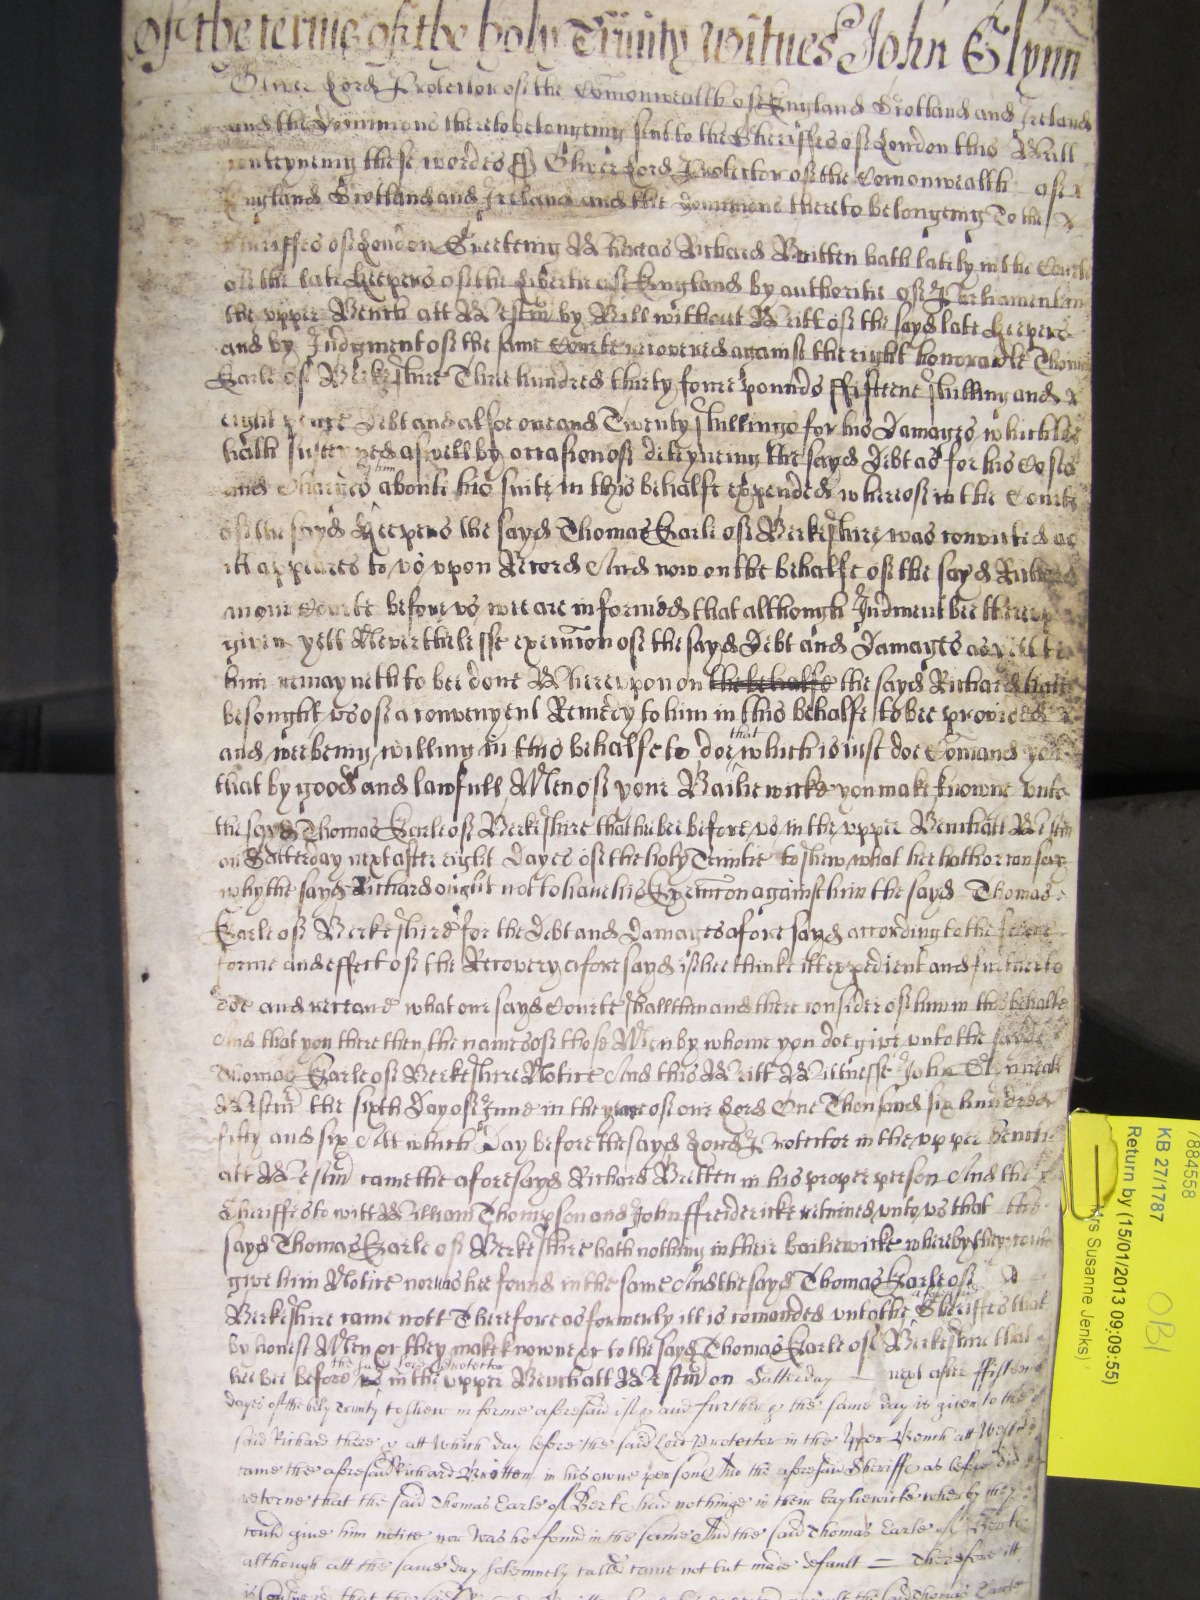 of the terme of the holy Trinity Witnes John Glynn
Oliver Lord Protector of the Comonwealth of England Scotland and Ireland
and the Dominions thereto belonging sent to the Sheriffes of London this Writt
conteyneing these wordes ss Oliver Lord Protector of the Comonwealth of
England Scotland and Ireland and the Dominions thereto belongeing To the
Sheriffes of London Greeteing Whereas Richard Britten hath lately in the Court
of the late Keepers of the libertie of England by authoritie of Parliament in
the upper Bench att Westm by Bill without Writt of the sayd late Keepers
and by Judgment of the same Courte recovered against the right honorable Thomas
Earle of Berkeshire Three hundred thirty foure pounds ffifteene shilling and
eight pence Debt and alsoe one and Twenty shillings for his Damages which hee
hath susteyned aswell by occasion of deteyneing the sayd Debt as for his Costs
and Charges by him aboute his suite in this behalfe expended whereof in the Courte
of the sayd Keepers the sayd Thomas Earle of Berkeshire was convicted as
itt appeares to us upon Record And now on the behalfe of the sayd Richard
in our Courte before us wee are informed that although Judment bee thereup
given yett Neverthelesse execucon of the sayd Debt and Damages as yett to
him remayneth to bee done Whereupon on the behalfe the sayd Richard hath
besought us of a convenyent Remedy to him in this behalfe to bee provided
and wee being willing in this behalfe to doe that which is just doe Comand you
that by good and lawfull Men of your Bailiewicke you make knowne unto
the sayd Thomas Earle of Berkeshire that hee bee before us in the upper Bench att Westm
on Satterday next after eight Dayes of the holy Trinitie to shew what hee hath or can say
why the sayd Richard ought not to have his Execucon against him the sayd Thomas
Earle of Berkeshire for the Debt and Damages aforesayd according to the
forme and effect of the Recovery aforesayd if hee thinke itt expedient and further to
doe and receave what our sayd Courte shall then and there consider of him in this behalfe
And that you there then the names of those Men by whome you doe give unto the sayd
Thomas Earle of Berkeshire Notice And this Writt Wittnesse John Glynn att
Westm the sixth Day of June in the yeare of our Lord One Thousand six hundred
fifty and six Att which Day before the sayd Lord Protector in the upper Bench
att Westm came the aforesayd Richard Britten in his proper person And the
Sheriffes to witt William Thompson and John ffredericke retorned unto us that the
sayd Thomas Earle of Berkeshire hath nothing in their bailiewicke whereby they could
give him Notice nor was hee found in the same And the sayd Thomas Earle of
Berkeshire came nott Therefore as formerly itt is comanded unto the aforesayd Sheriffes that
by honest Men &c they make knowne &c to the sayd Thomas Earle of Berkeshire that
hee bee before the said Lord Protector in the upper Bench att Westm on Satterday next after ffifteene
dayes of the holy Trinity to shew in forme aforesaid if &c and further &c the same day is given to the
said Richard there &c att which day before the said Lord Protector in the upper Bench att Westm
came the aforesaid Richard Britten in his owne person And the aforesaid Sheriffs as before did
retorne that the said Thomas Earle of Berke had nothinge in their bayliewicke whereby they
could give him notice nor was he found in the same And the said Thomas Earle of Berke
although att the same day solemnely called came not but made default Therefore itt
is Considered that the said
7884558
KB 27/1787
Return by (15/01/2013 09:09:55)
Mrs Susanne Jenks)
OB1